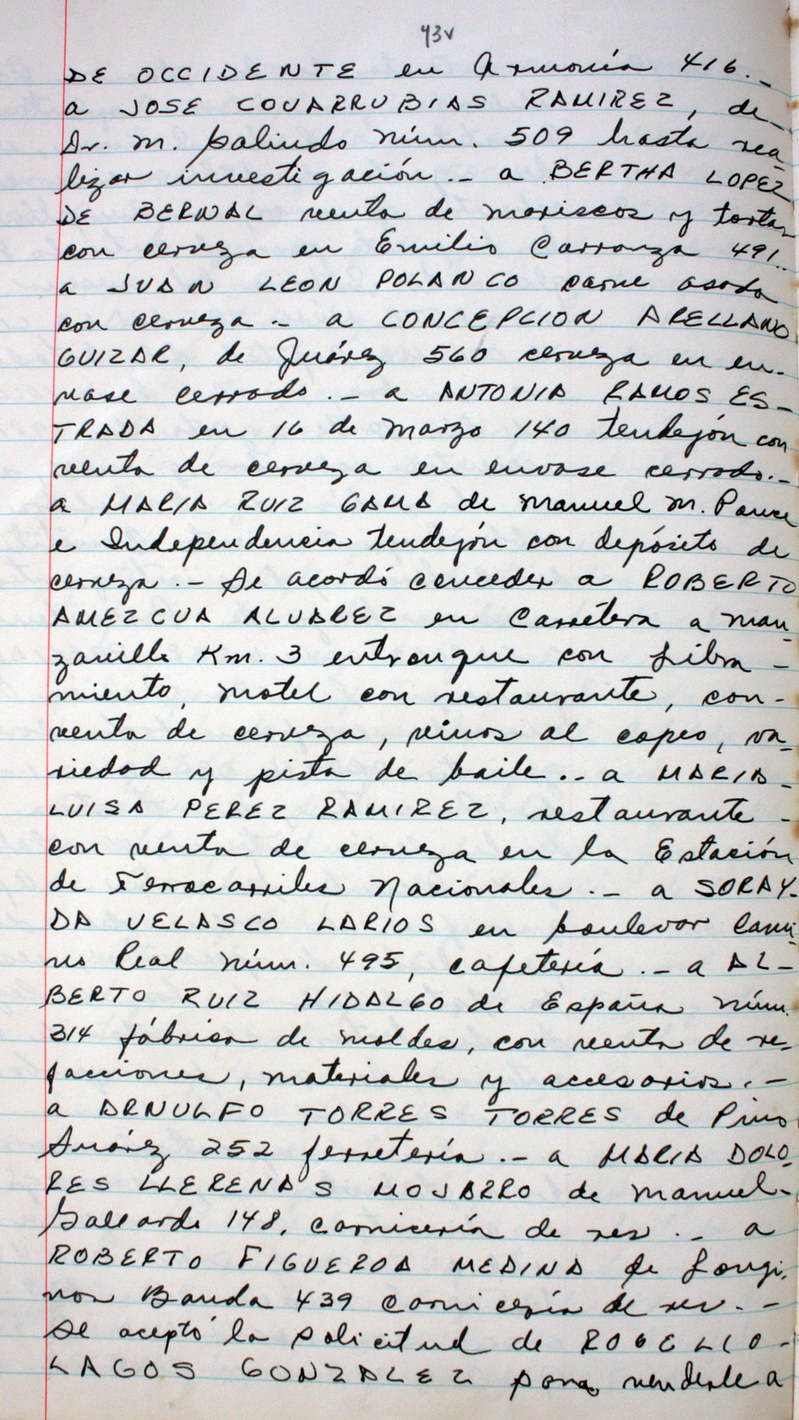 43v
DE OCCIDENTE en Armonía 416._
a JOSE COVARRUBIAS RAMIREZ, de_
Dr. M. Galindo núm. 509 hasta rea_
lizar investigación._ a BERTHA LOPEZ
DE BERNAL venta de mariscos y tortas
con cerveza en Emilio Carranza 491._
a JUAN LEON POLANCO carne asada
con cerveza._ a CONCEPCION ARELLANO
GUIZAR, de Juárez 560 cerveza en en_
vase cerrado._ a ANTONIA RAMOS ES_
TRADA en 16 de Marzo 140 tendejón con
venta de cerveza en envase cerrado._
a MARIA RUIZ GAMA de Manuel M. Ponce
e Independencia tendejón con depósito de
cerveza._ Se acordó conceder a ROBERTO
AMEZCUA ALVAREZ en Carretera a Man_
zanillo Km. 3 entronque con Libra_
miento, motel con restaurante, con_
venta de cerveza, vinos al copeo, va_
riedad y pista de baile._ a MARIA_
LUISA PEREZ RAMIREZ, restaurante_
con venta de cerveza en la Estación
de Ferrocarriles Nacionales._ a SORAY_
DA VELASCO LARIOS en boulevar Cami_
no Real núm. 495, cafetería._ a AL_
BERTO RUIZ HIDALGO de España núm.
314 fábrica de moldes, con venta de re_
facciones, materiales y accesorios._
a ARNULFO TORRES TORRES de Pino
Suárez 252 ferretería._ a MARIA DOLO_
RES LLERENAS MOJARRO de Manuel_
Gallardo 148, carnicería de res._ a
ROBERTO FIGUEROA MEDINA de Longi_
nos Banda 439 carnicería de res._
Se aceptó la solicitud de ROGELIO_
LAGOS GONZALEZ para venderle a